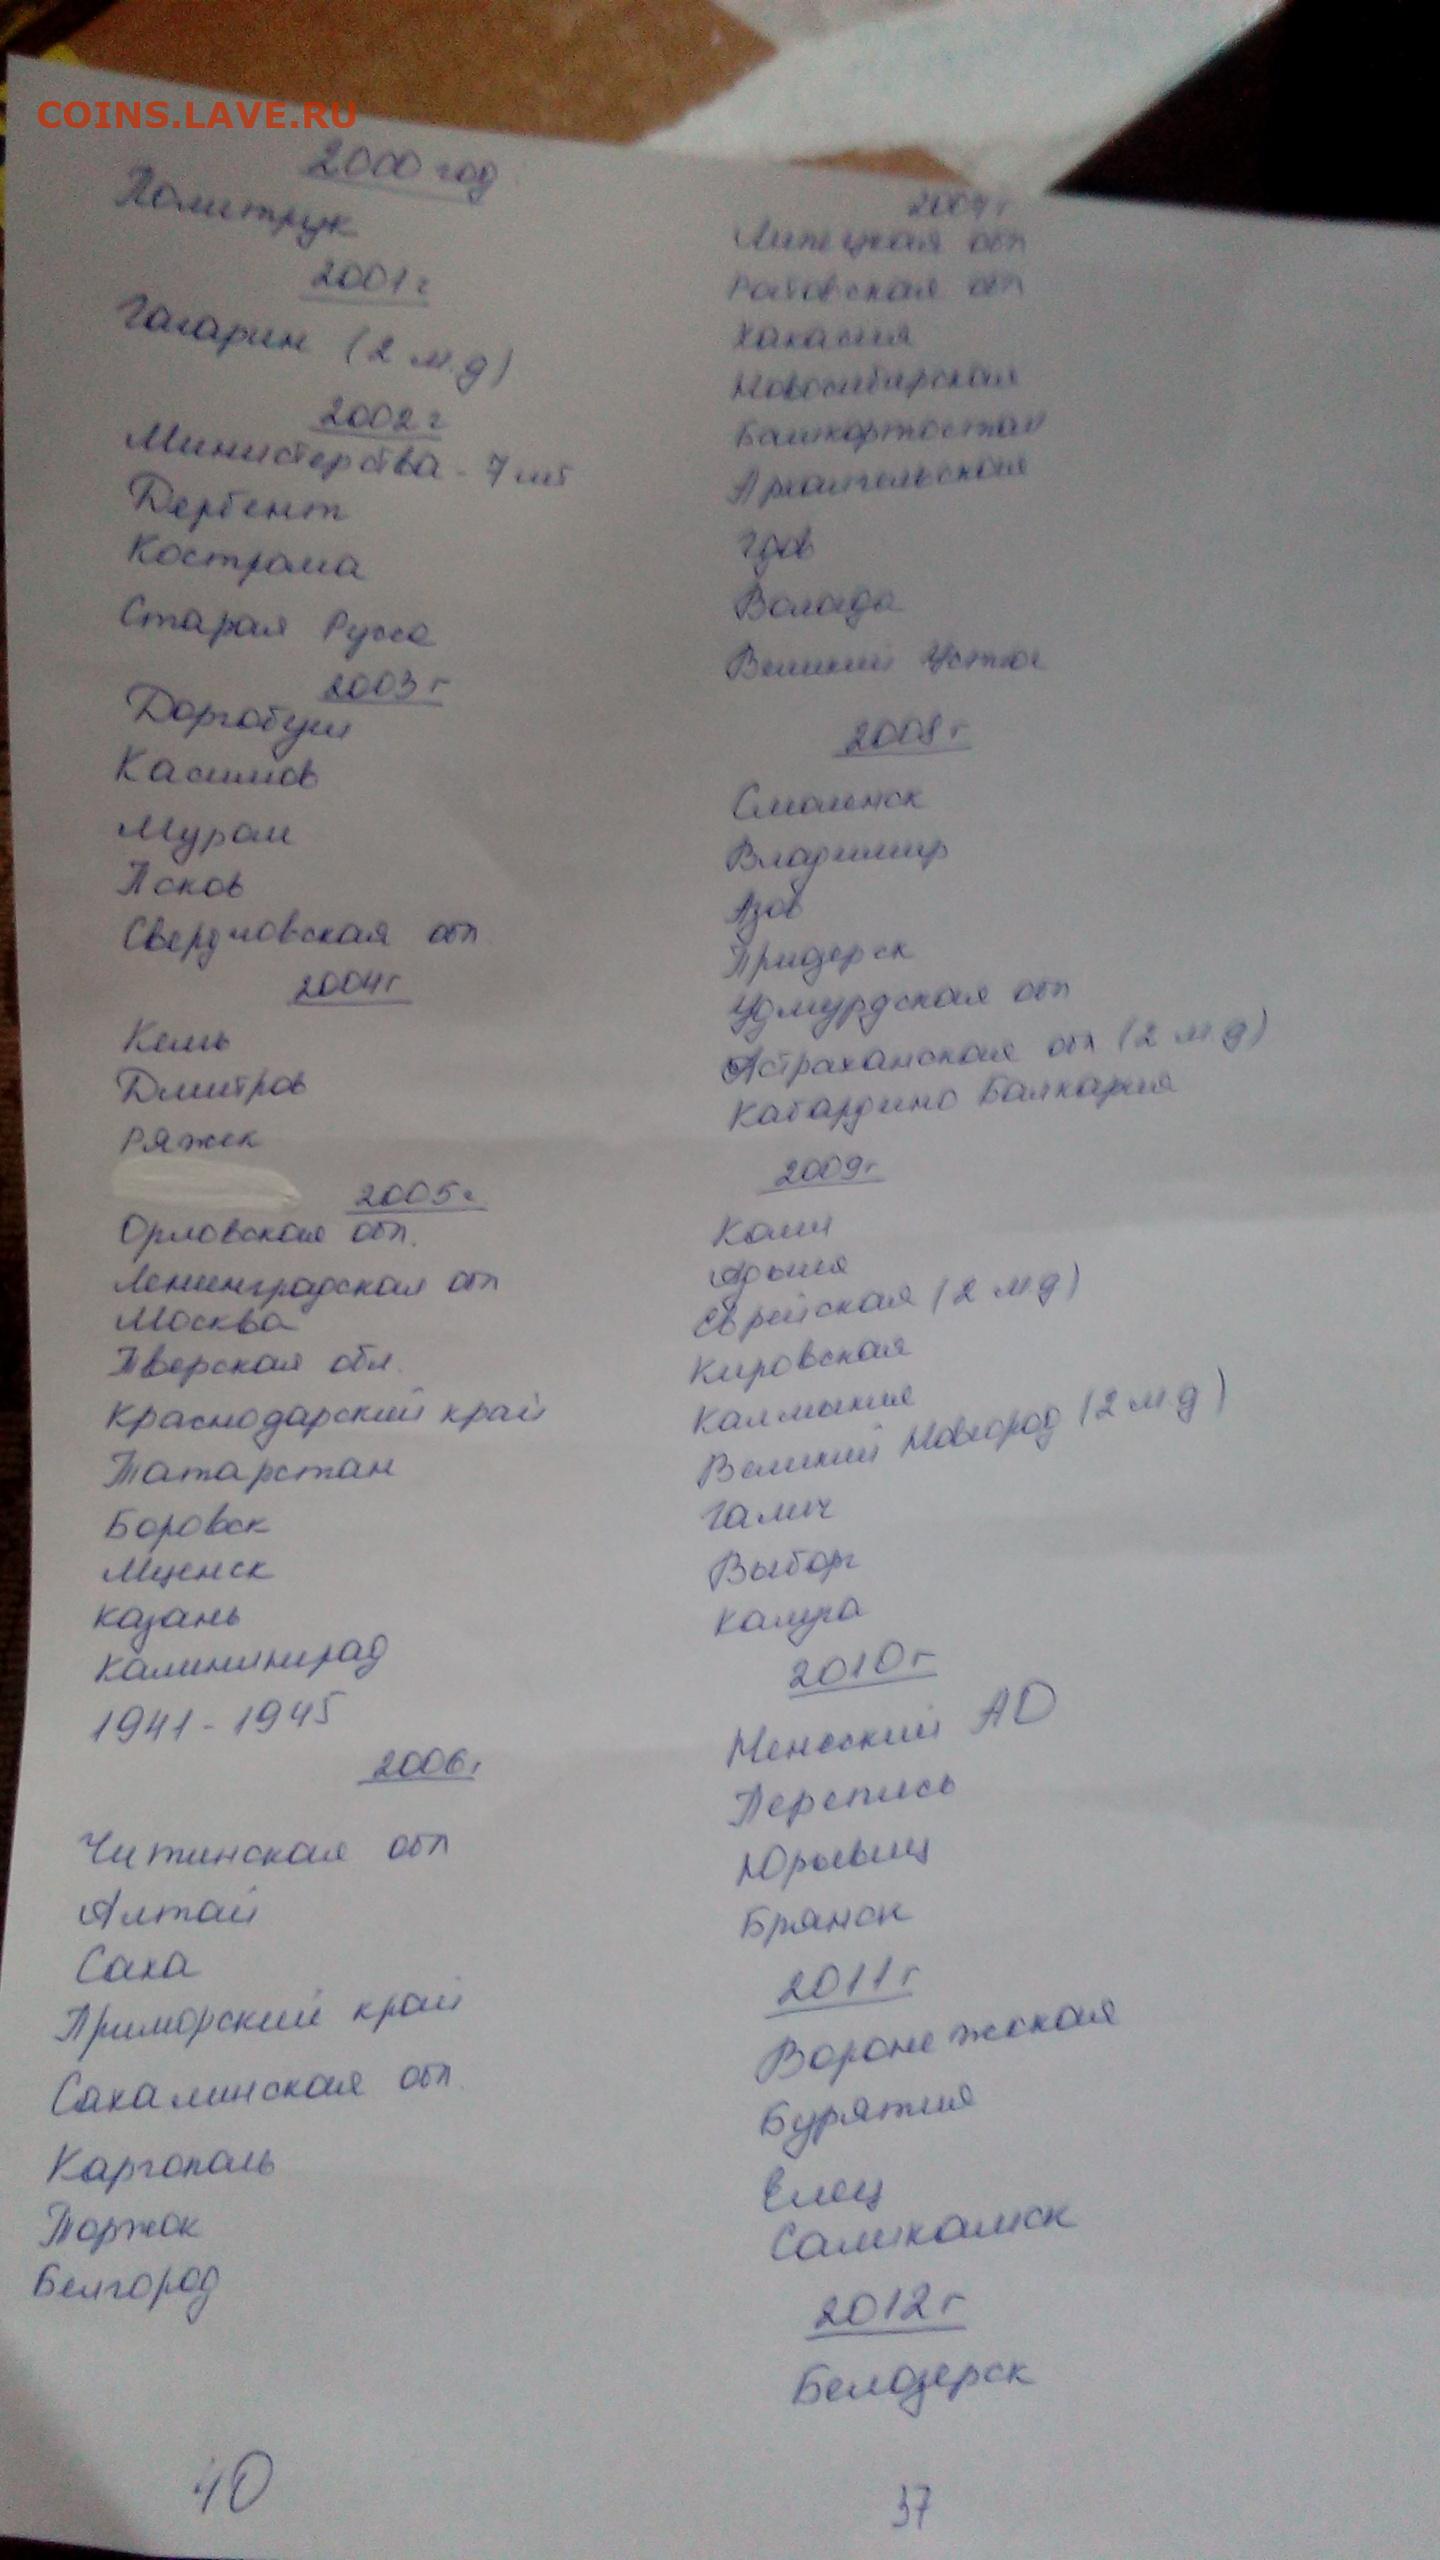 COINS.LAVE.RU
2000 год
Политрук
2001 г
Гагарин (2 м.д)
2002 г
Министерства - 7 шт
Дербент
Кострома
Старая Русса
2003 г
Доргобуш
Касимов
Муром
Псков
Свердловская обл
2004 г
Кемь
Дмитров
Ряжск
2005 г
Орловская обл.
Ленинградская обл
Москва
Тверская обл.
Краснодарский край
Татарстан
Боровск
Мценск
Казань
Калининград
1941 - 1945
2006 г
Читинская обл
Алтай
Саха
Приморский край
Сахалинская обл.
Каргополь
Торжок
Белгород
40
Липецкая обл
Ростовская обл
Хакасия
Новосибирская
Башкортостан
Архангельская
Гдов
Вологда
Великий Устюг
2008 г
Смоленск
Владимир
Азов
Придерск
Удмурдская обл
Астраханская обл (2 м.д)
Кабардино Балкария
2009 г
Коми
Адыгея
Еврейская (2 м.д)
Кировская
Калмыкия
Великий Новгород (2 м.д)
Галич
Выборг
Калуга
2010 г
Ненецкий АО
Перепись
Юрьевец
Брянск
2011 г
Воронежская
Бурятия
Елец
Соликамск
2012 г
Белозерск
37